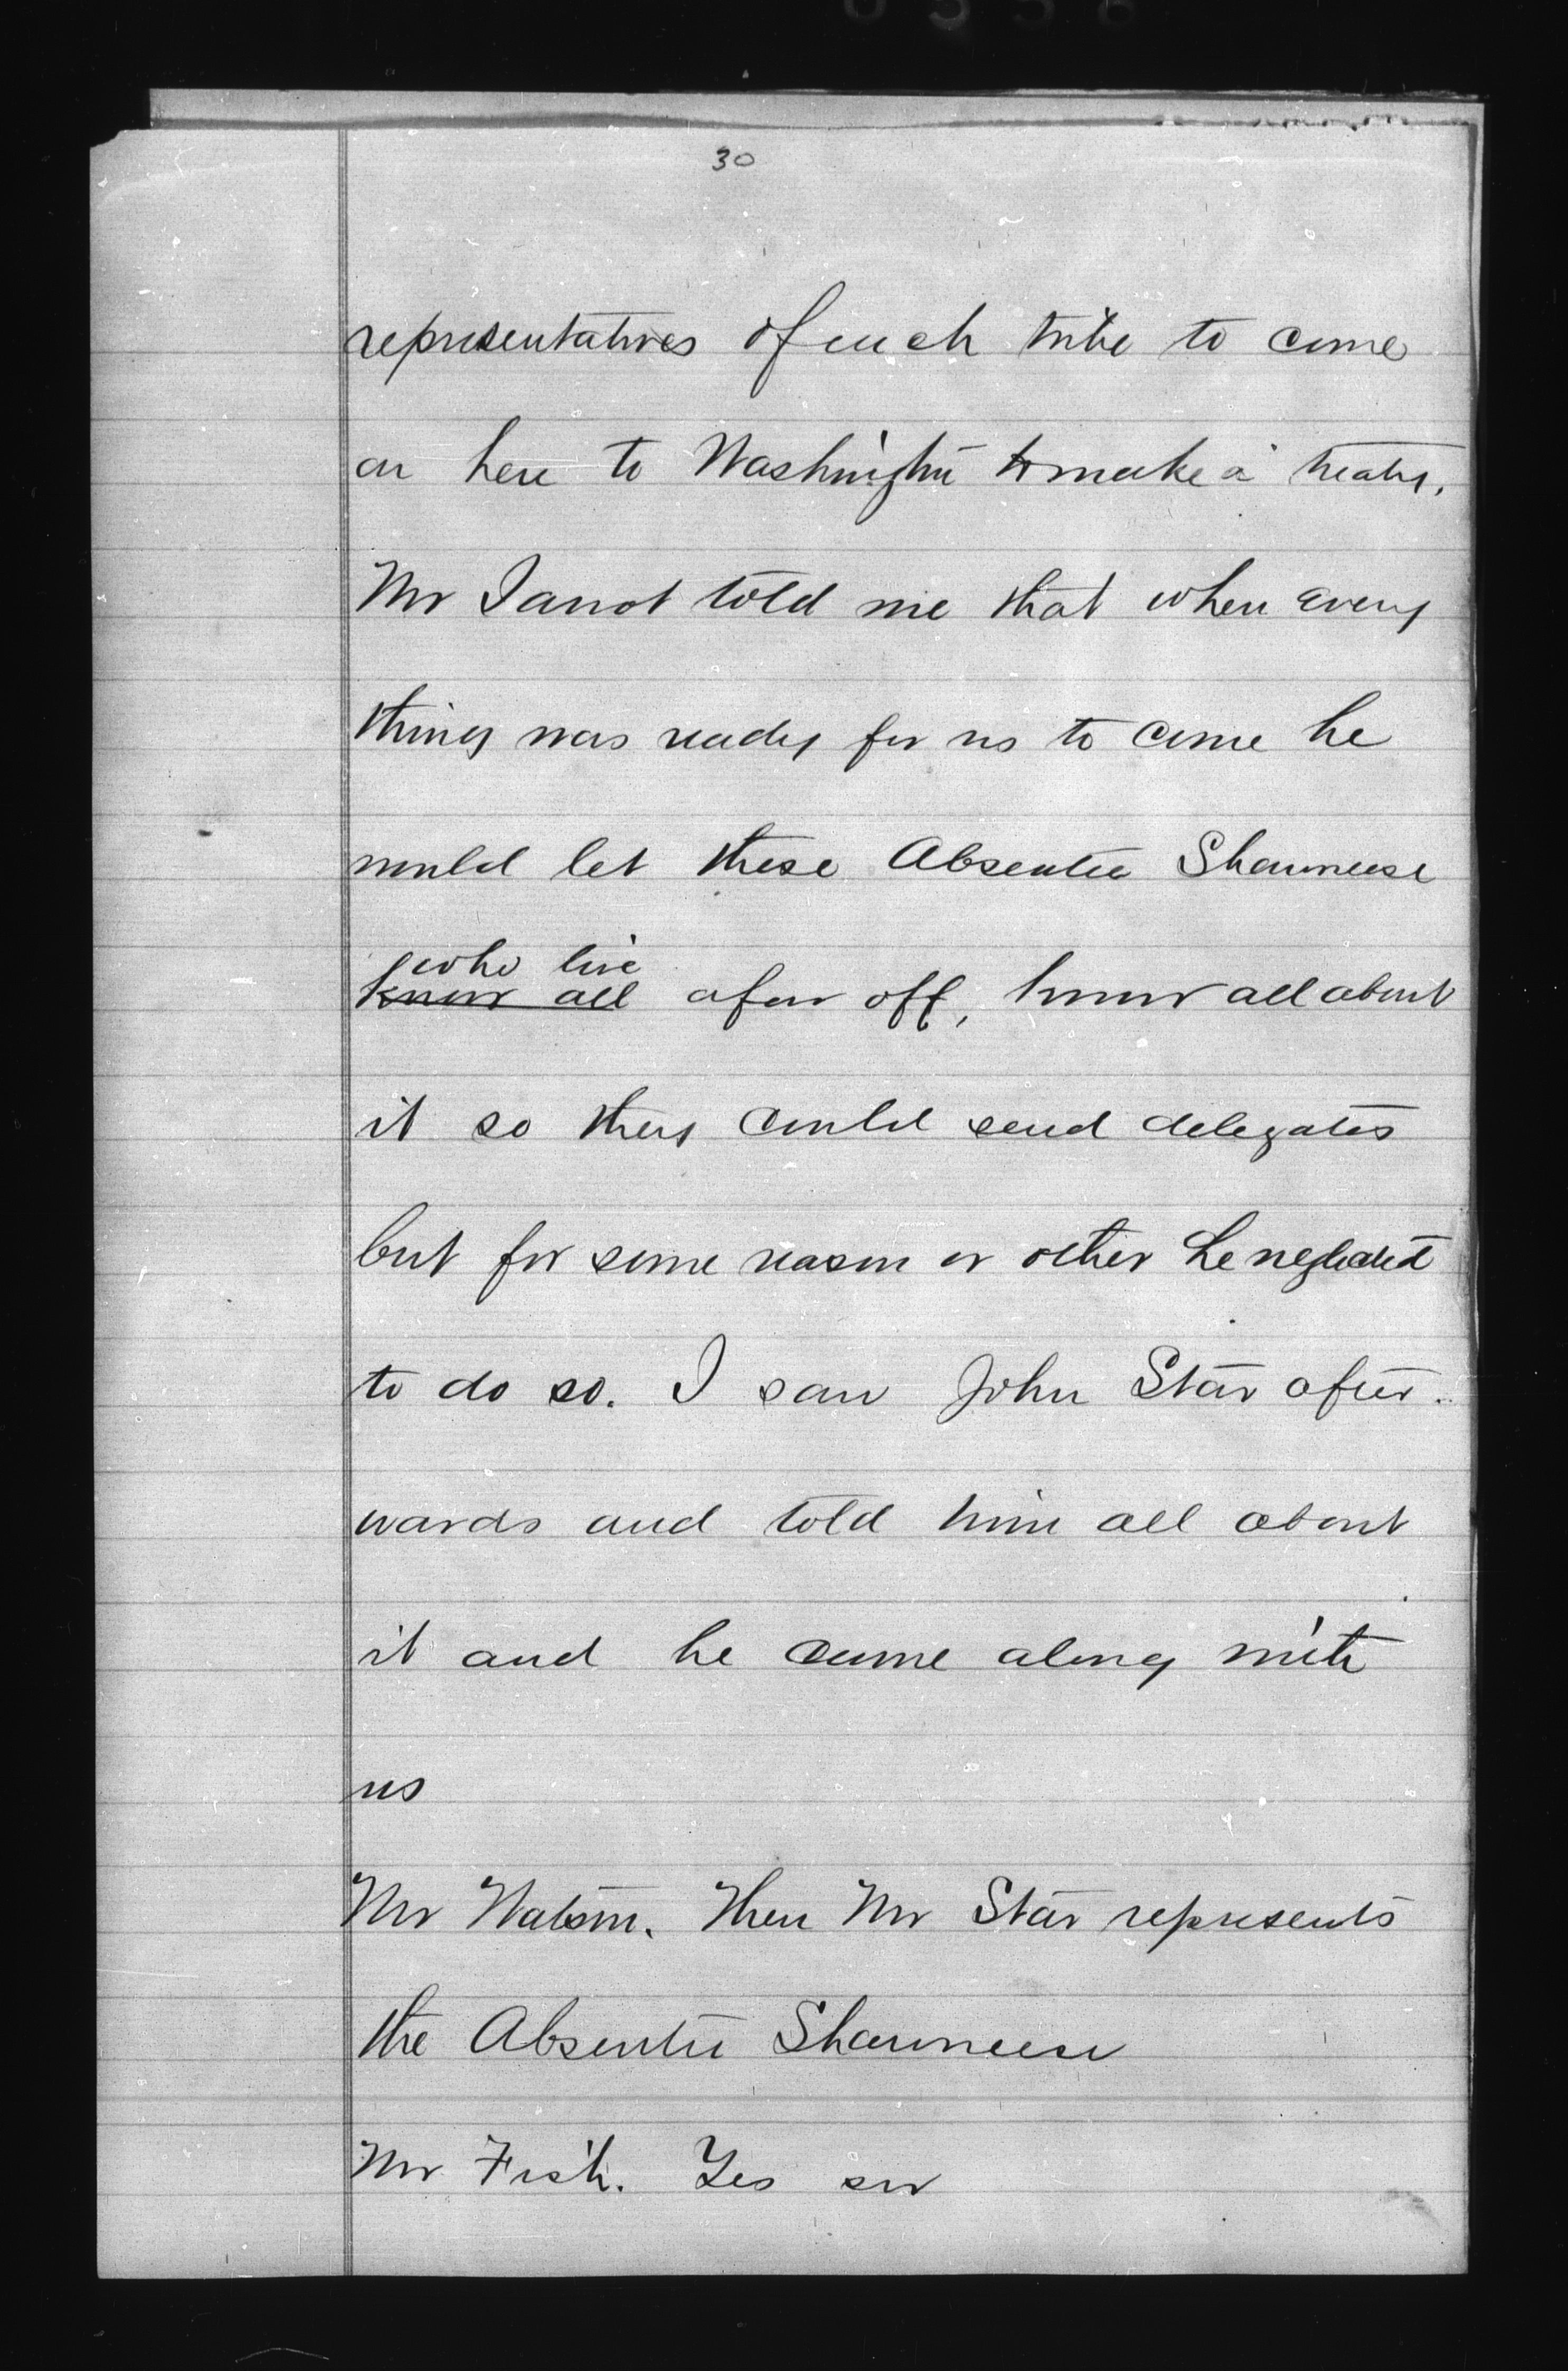 30
representatives of each tribe to come
on here to Washington to make a treaty.
Mr Janot told me that when every
thing was ready for us to come he
would let these Absentee Shawneese
who live
know all afar off, know all about
it so they could send delegates
but for some reason or other he neglected
to do so. I saw John Star after-
wards and told him all about
it and he came along with
us
Mr Watson. Then Mr Star represents
the Absentee Shawneese
Mr Fish. Yes sir